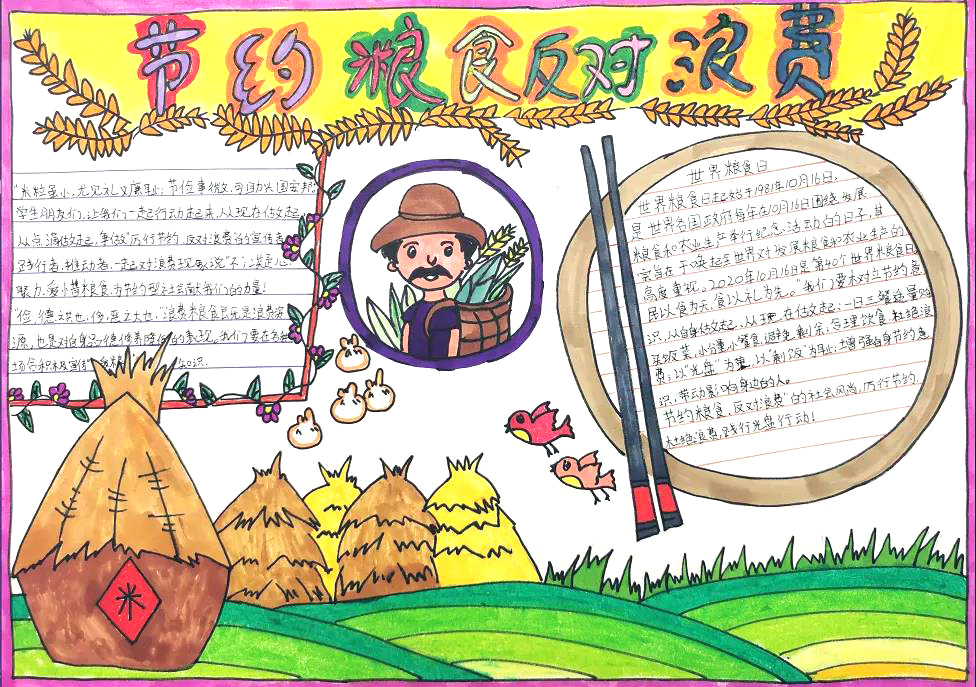 节约粮食反对浪费
"米粒虽小,尤见礼义廉耻;节俭事微,可助兴国安邦
学生朋友们,让我们一起行动起来,从现在做起
从点滴做起,争做"厉行节约、反对浪费"的宣传者
践行者、推动者,一起对浪费现象说"不";
聚力,爱惜粮食为节约型社会献我们的力量!
"俭,德之共也;侈,恶之大也",浪费粮食不仅是浪费资
源,也是对自身品德修养降低的表现,我们要在各种
场合积极宣传 知识.
世界粮食日
世界粮食日起始于1981年10月16日,
是世界各国政府每年在10月16日围绕发展
粮食和农业生产举行纪念活动的日子,其
宗旨在于唤起全世界对发展粮食和农业生产的
高度重视。2020年10月16日是第40个世界粮食日
民以食为天,食以礼为先。"我们要树立节约意
识,从自身做起、从现在做起:一日三餐适量购
买饭菜,小份小餐食避免剩余,合理饮食,杜绝浪
费;以"光盘"为荣,以"剩饭"为耻;增强自身节约意
识,带动影响身边的人。
节约粮食、反对浪费"的社会风尚,厉行节约.
杜绝浪费,践行光盘行动!
米